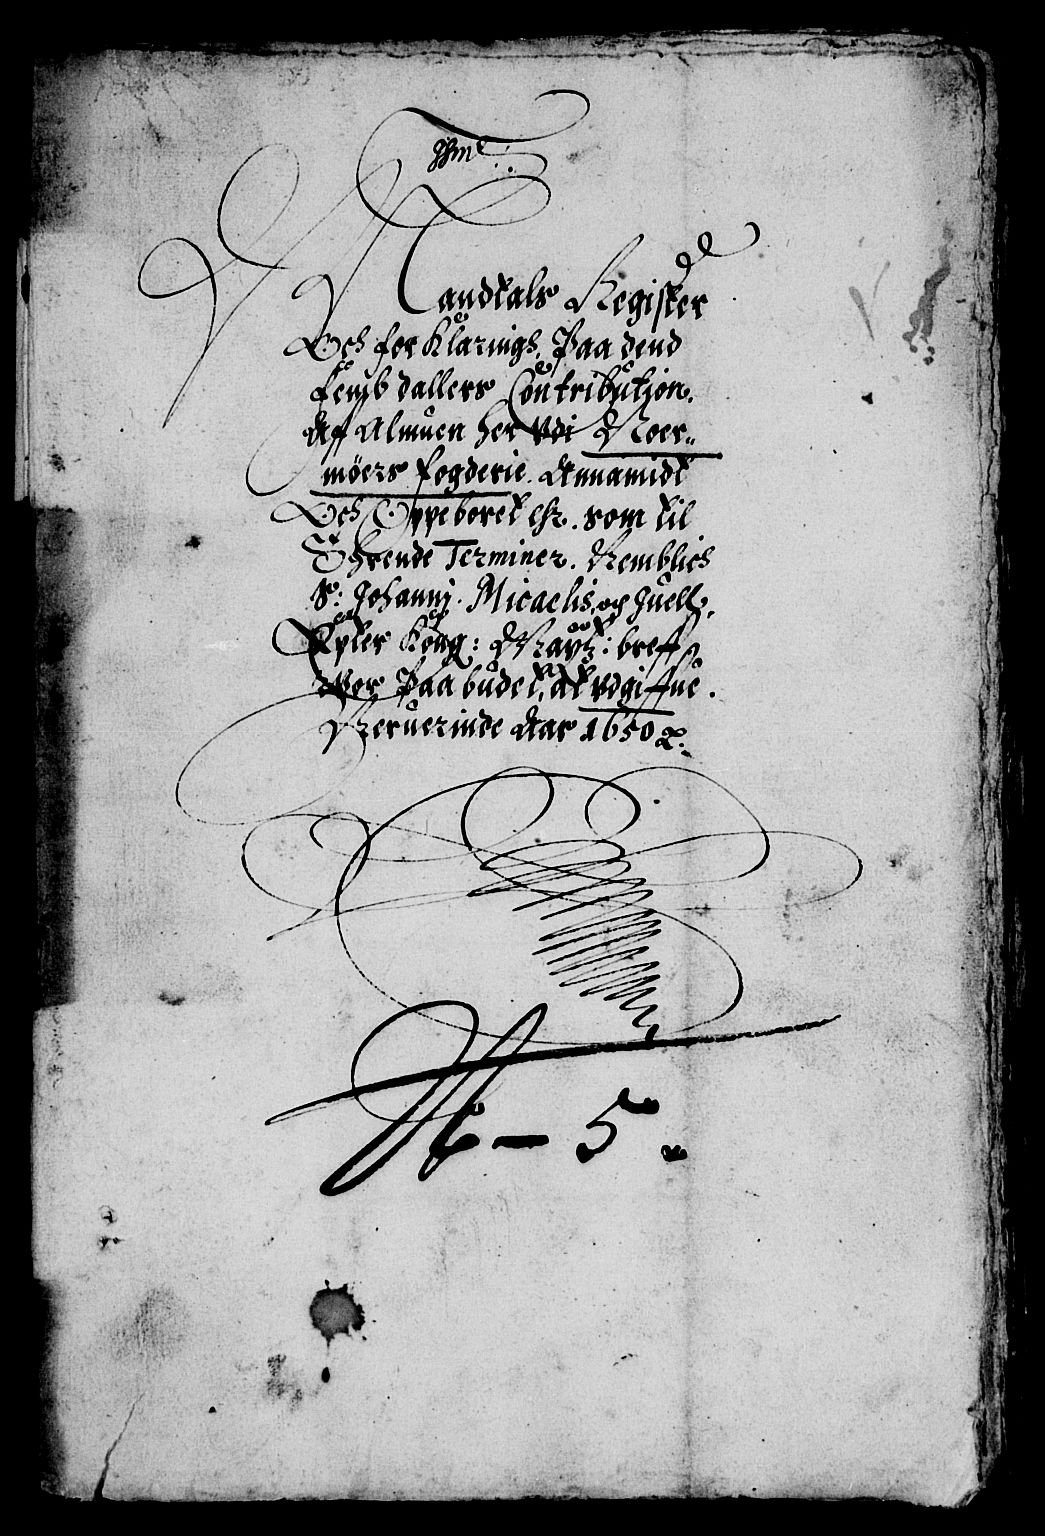 Mandtals Register
Och for Klarings, Paa dend
femb dallers Contribution.
Aff Almuen her vdi Noer-
möers fogderie. Annamidt
Och Oppeboret som til
Terminer. Nemblich
S: Johannj. Micaelis, och Juell,
Epter Kong: Maytz: breff,
Paa budet, at vdgiffue.
Neruerinde Aar 1650
N 6 - 5.